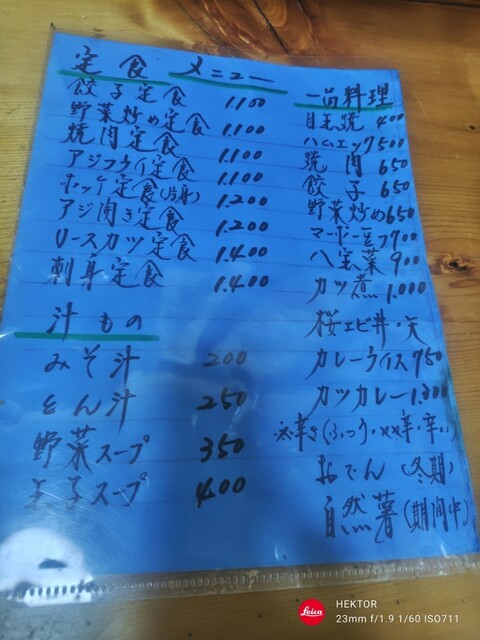 定食 メニュー
餃子定食 1.100
野菜炒め定食 1.100
焼肉定食 1.100
アジフライ定食 1.100
ホッケ定食(片身) 1.200
アジ開き定食 1.200
ロースカツ定食 1.400
刺身定食 1.400
汁もの
みそ汁 200
とん汁 250
野菜スープ 350
玉子スープ 400
一品料理
目玉焼 400
ハムエッグ 500
焼肉 650
餃子 650
野菜炒め 650
マーボー豆フ 700
八宝菜 900
カツ煮 1.000
桜エビ丼・天
カレーライス 950
カツカレー 1.300
辛さ(ふつう・辛・辛い)
おでん(冬期)
自然薯(期間中)
Leica
HEKTOR
23mm f/1.9 1/60 ISO711